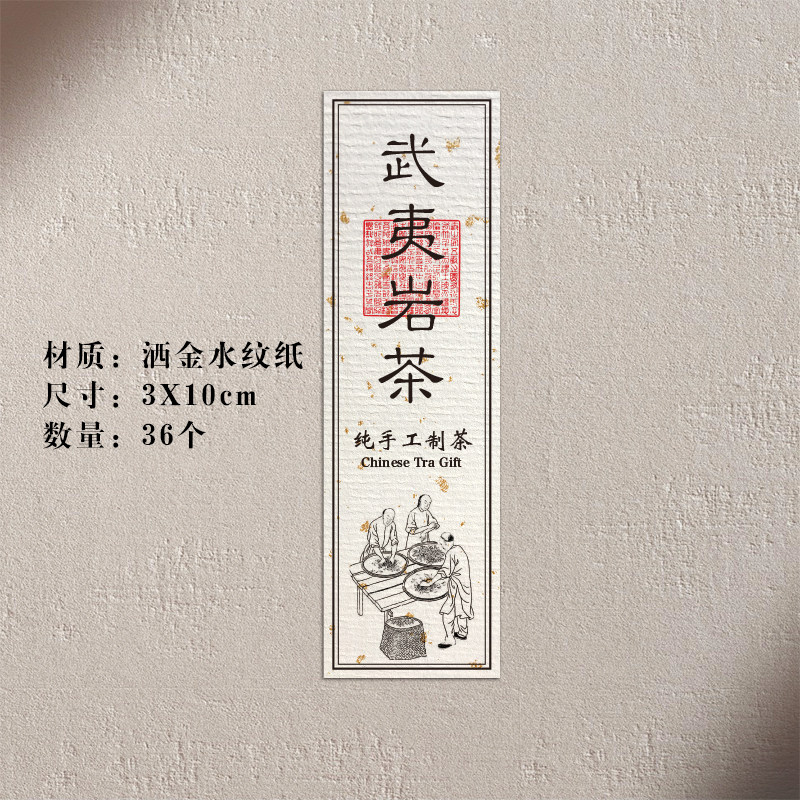 材质：洒金水纹纸
尺寸：3X10cm
数量：36个
武夷岩茶
纯手工制茶
Chinese Tra Gift